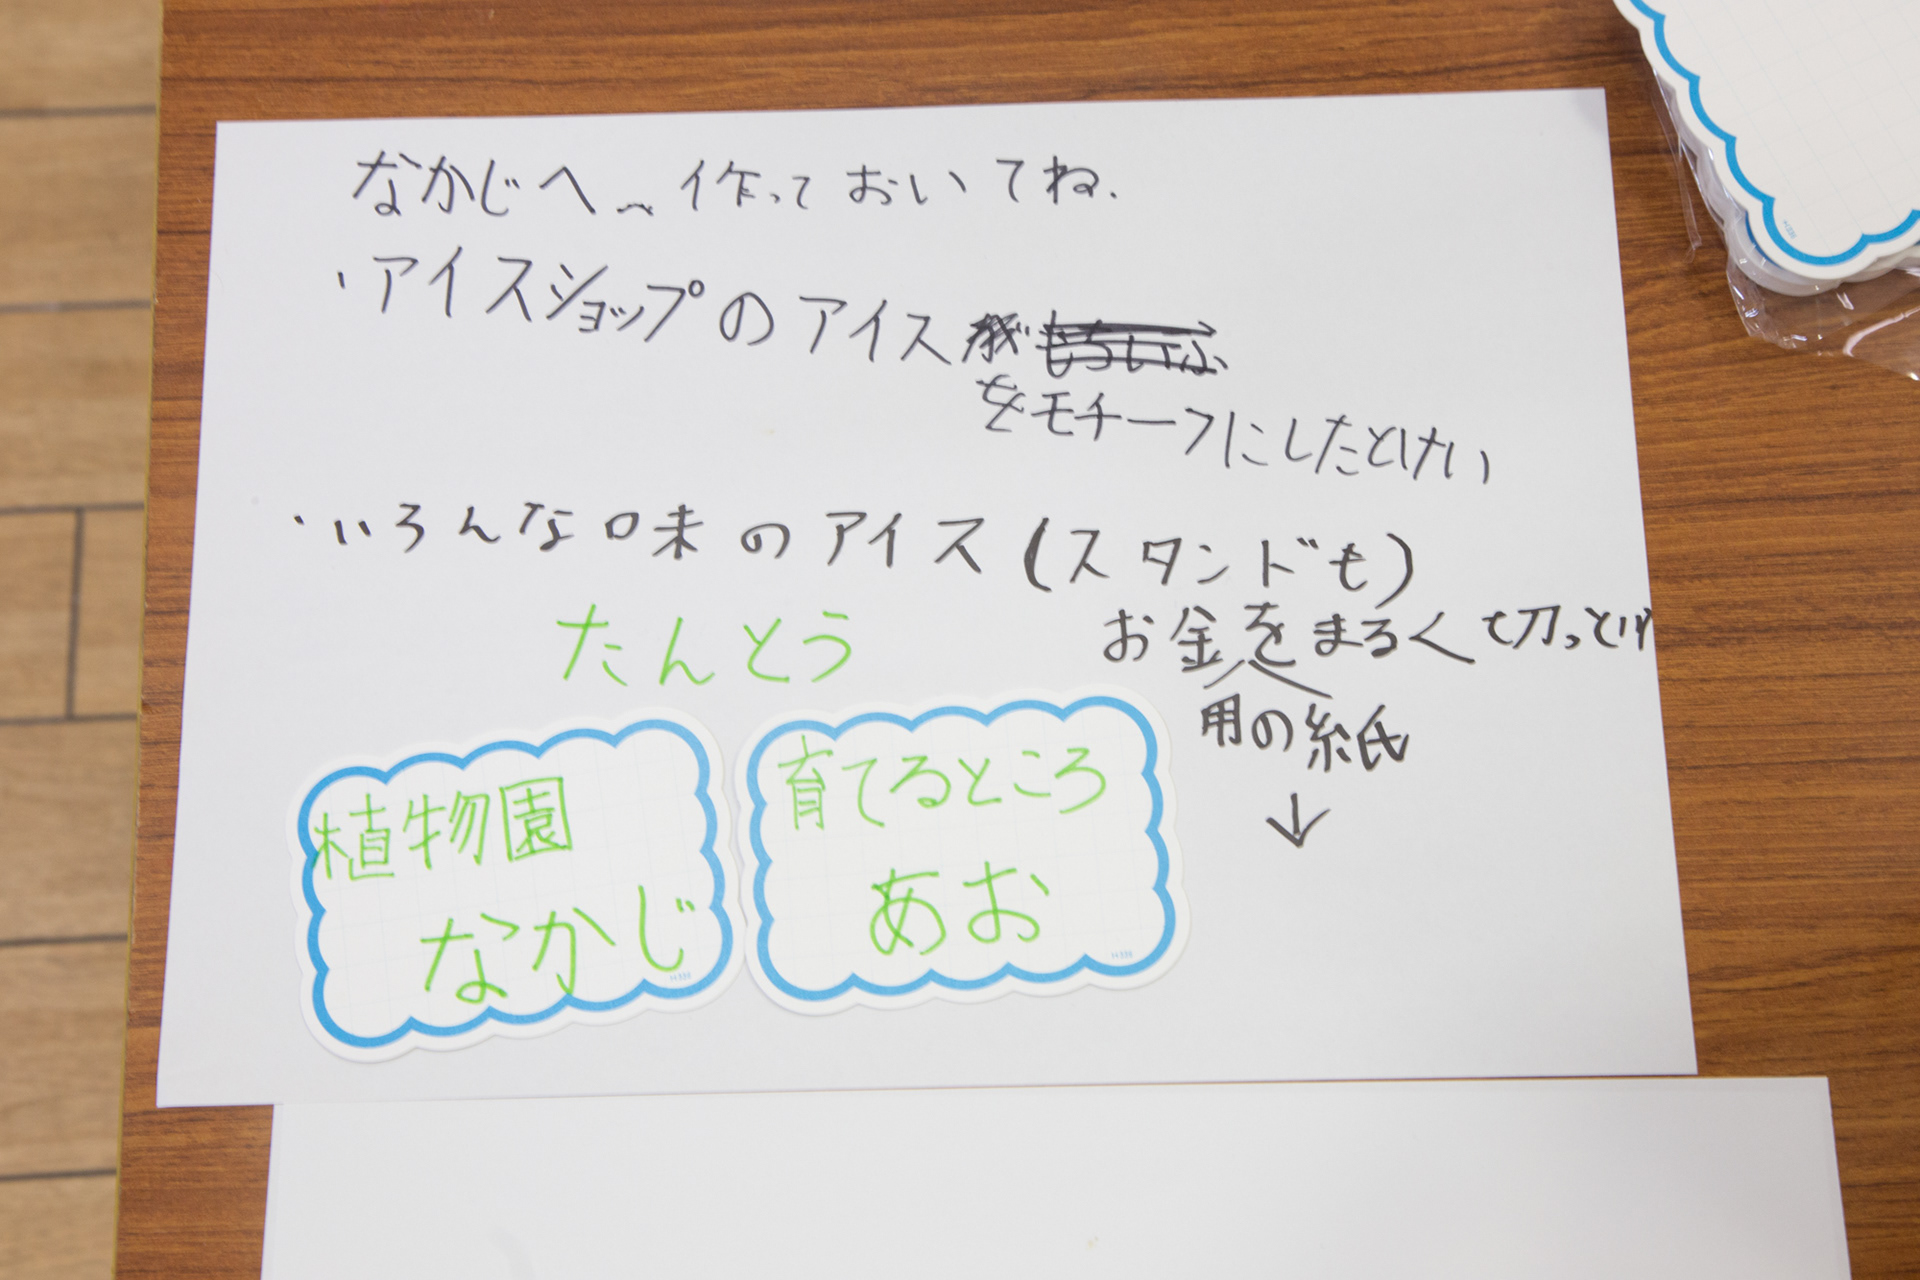 なかじへ 作っておいてね.
・アイスショップのアイス
をモチーフにしたとけい
・いろんな味のアイス(スタンドも)
たんとう
お金をまるく切っとけ
用の紙
↓
植物園
なかじ
育てるところ
あお